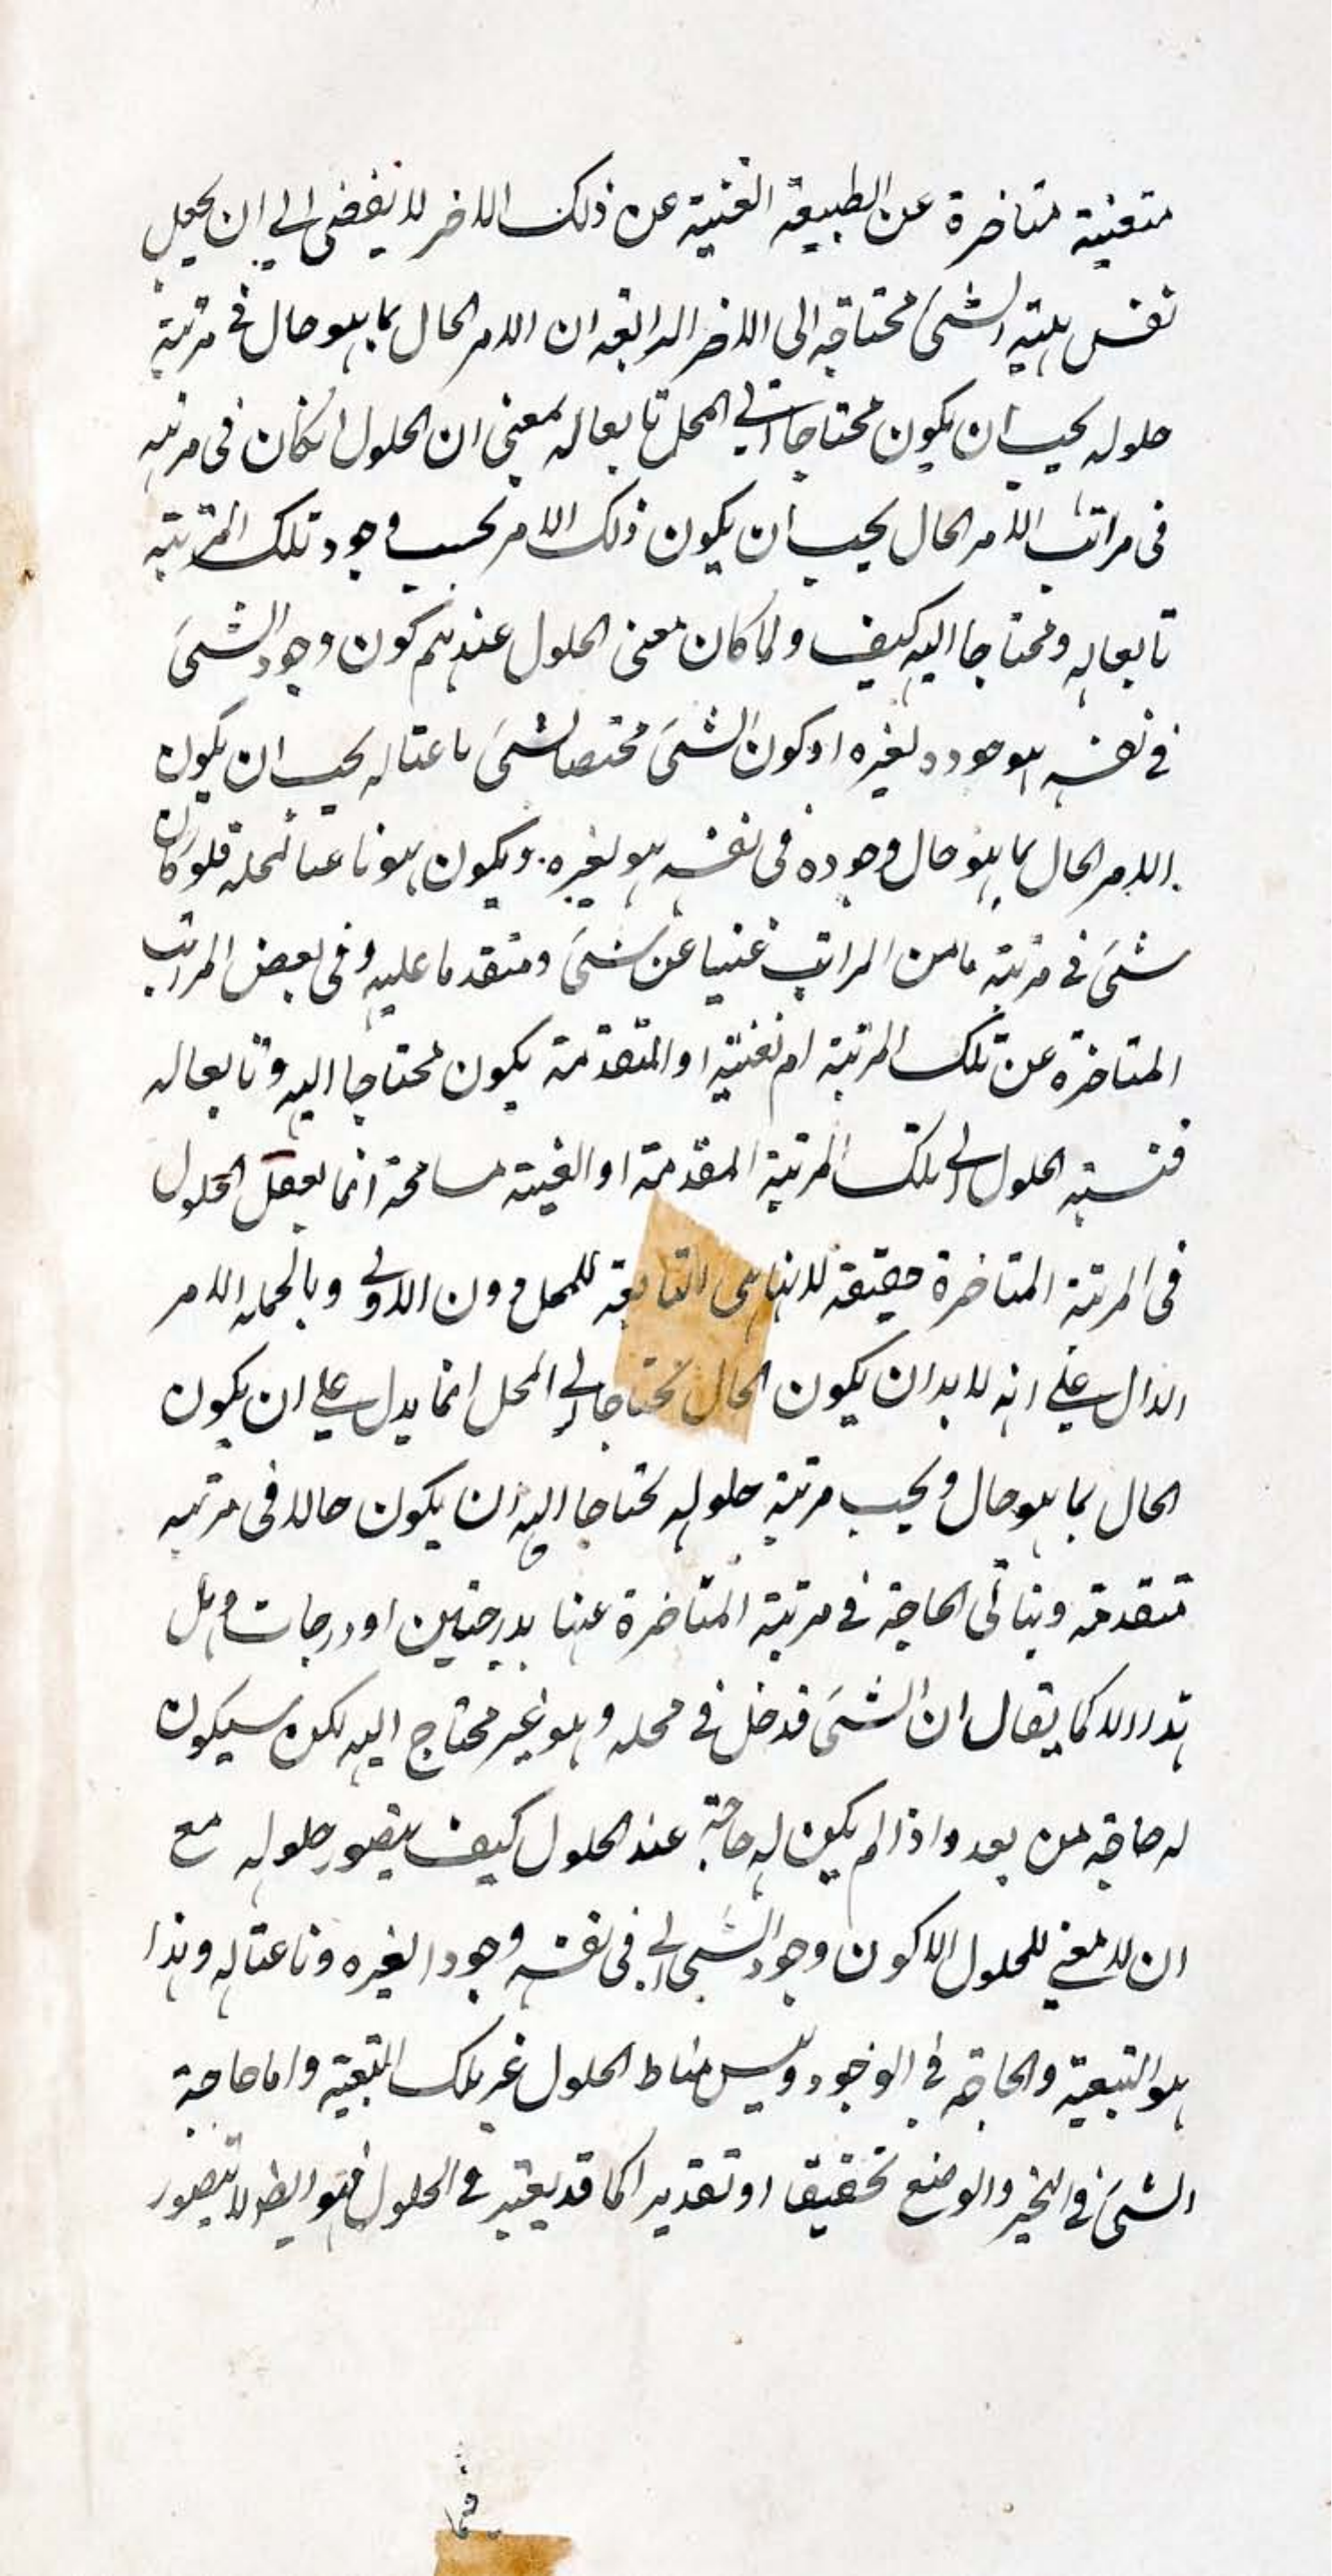 متعنية متاخرة عن الطبيعة الغنية عن ذلك الاخر لا يفضى الى ان يجعل
نفس هية الشئ محتاجة الى الاخر الرابعة ان الامر الحال بما هو حال فى مرتبة
حلوله يجب ان يكون محتاجا الى المحل تابعا له بمعنى ان الحلول ان كان فى مرتبه
فى مراتب الامر الحال يجب ان يكون ذلك الامر بحسب وجود تلك المرتبة
تابعا له ومحتاجا اليه كيف ولما كان معنى الحلول عندهم كون وجود الشئ
فى نفسه هو وجوده لغيره او كون الشئ مختصا بشئ ناعتا له يجب ان يكون
الامر الحال بما هو حال وجوده فى نفسه هو لغيره ويكون هو ناعتا لمحله فلو كان
شئ فى مرتبة ما من المراتب غنيا عن شئ ومتقدما عليه وفى بعض المراتب
المتاخرة عن تلك المرتبة او المتقدمة يكون محتاجا اليه وتابعا له
فنسبة الحلول الى تلك المرتبة المقدمة او الغنية مسامحة انما يعقل الحلول
فى المرتبة المتاخرة حقيقة لانها هى التابعة للمحل دون الاولى وبالجملة الامر
الدال على انه لابد ان يكون الحال محتاجا الى المحل انما يدل على ان يكون
الحال بما هو حال وبحسب مرتبة حلوله محتاجا اليه ان يكون حالا فى مرتبه
متقدمة ويتاتى الحاجة فى مرتبة المتاخرة عنها بدرجتين او درجات وهل
هذا الا كما يقال ان الشئ قد حل فى محله وهو غير محتاج اليه لكن سيكون
له حاجة من بعد واذا لم يكن له حاجة عند الحلول كيف يتصور حلوله مع
ان لا معنى للحلول الا كون وجود الشئ فى نفسه وجودا لغيره وناعتا له وهذا
هو التبعية والحاجة فى الوجود وليس مناط الحلول غير تلك التبعية واما حاجة
الشئ فى التحيز والوضع تحقيقا او تقديرا كما قد يعتبر فى الحلول فهو ايضا لا يتصور